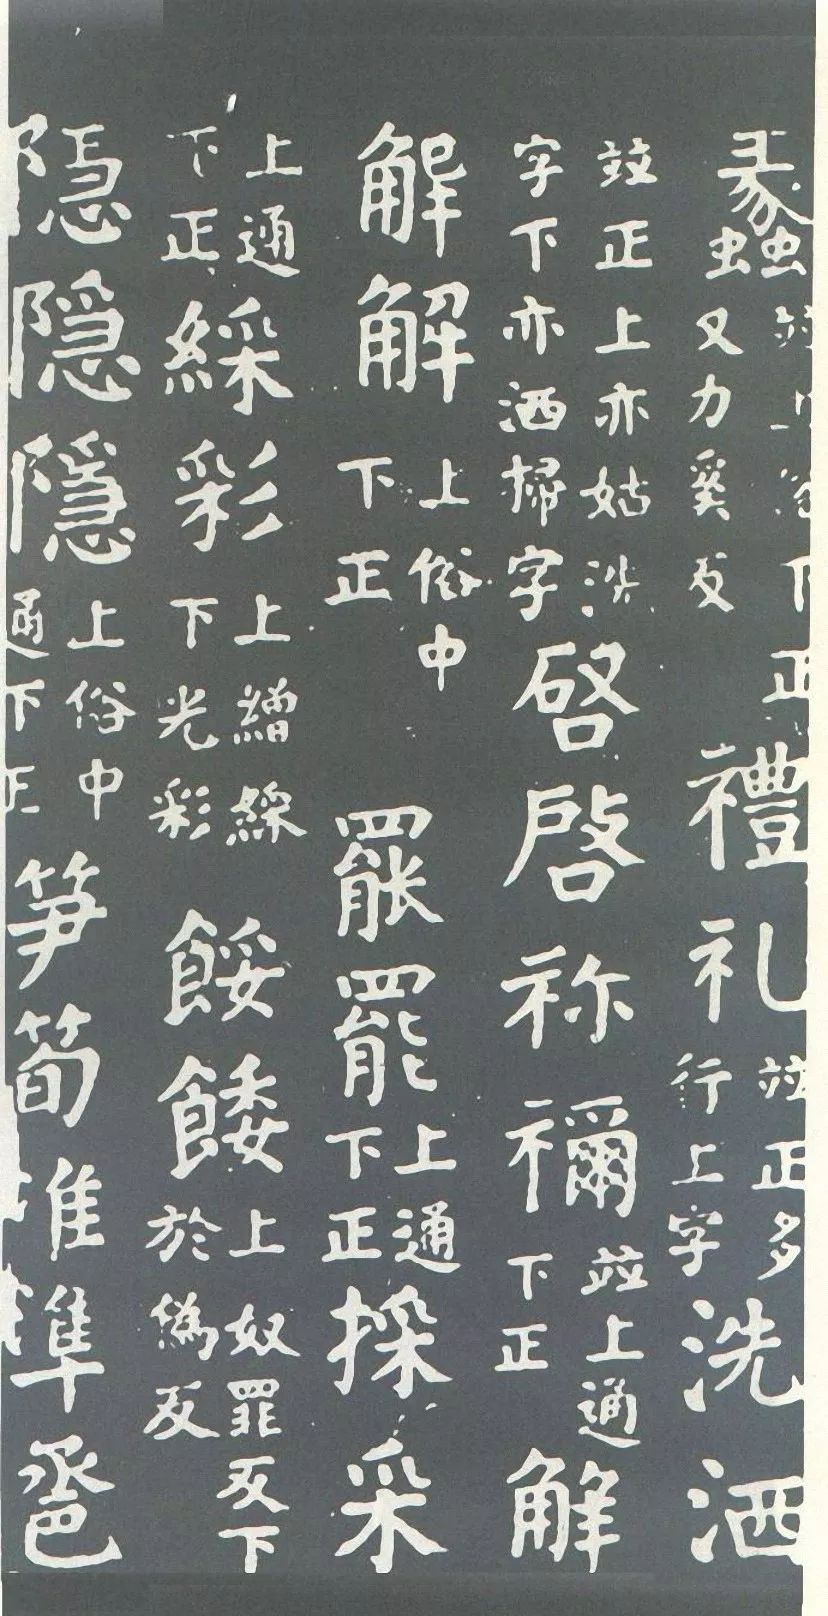 蠡並上俗下正又力奚反禮礼並正多行上字洗洒
並正上亦姑洗字下亦洒掃字啓啓祢禰並上通下正解
解解上俗中下正罷罷上通下正採采
上通下正綵彩上繒綵下光彩餒餧上奴罪反下於偽反
隐隐隱上俗中通下正笋筍准準